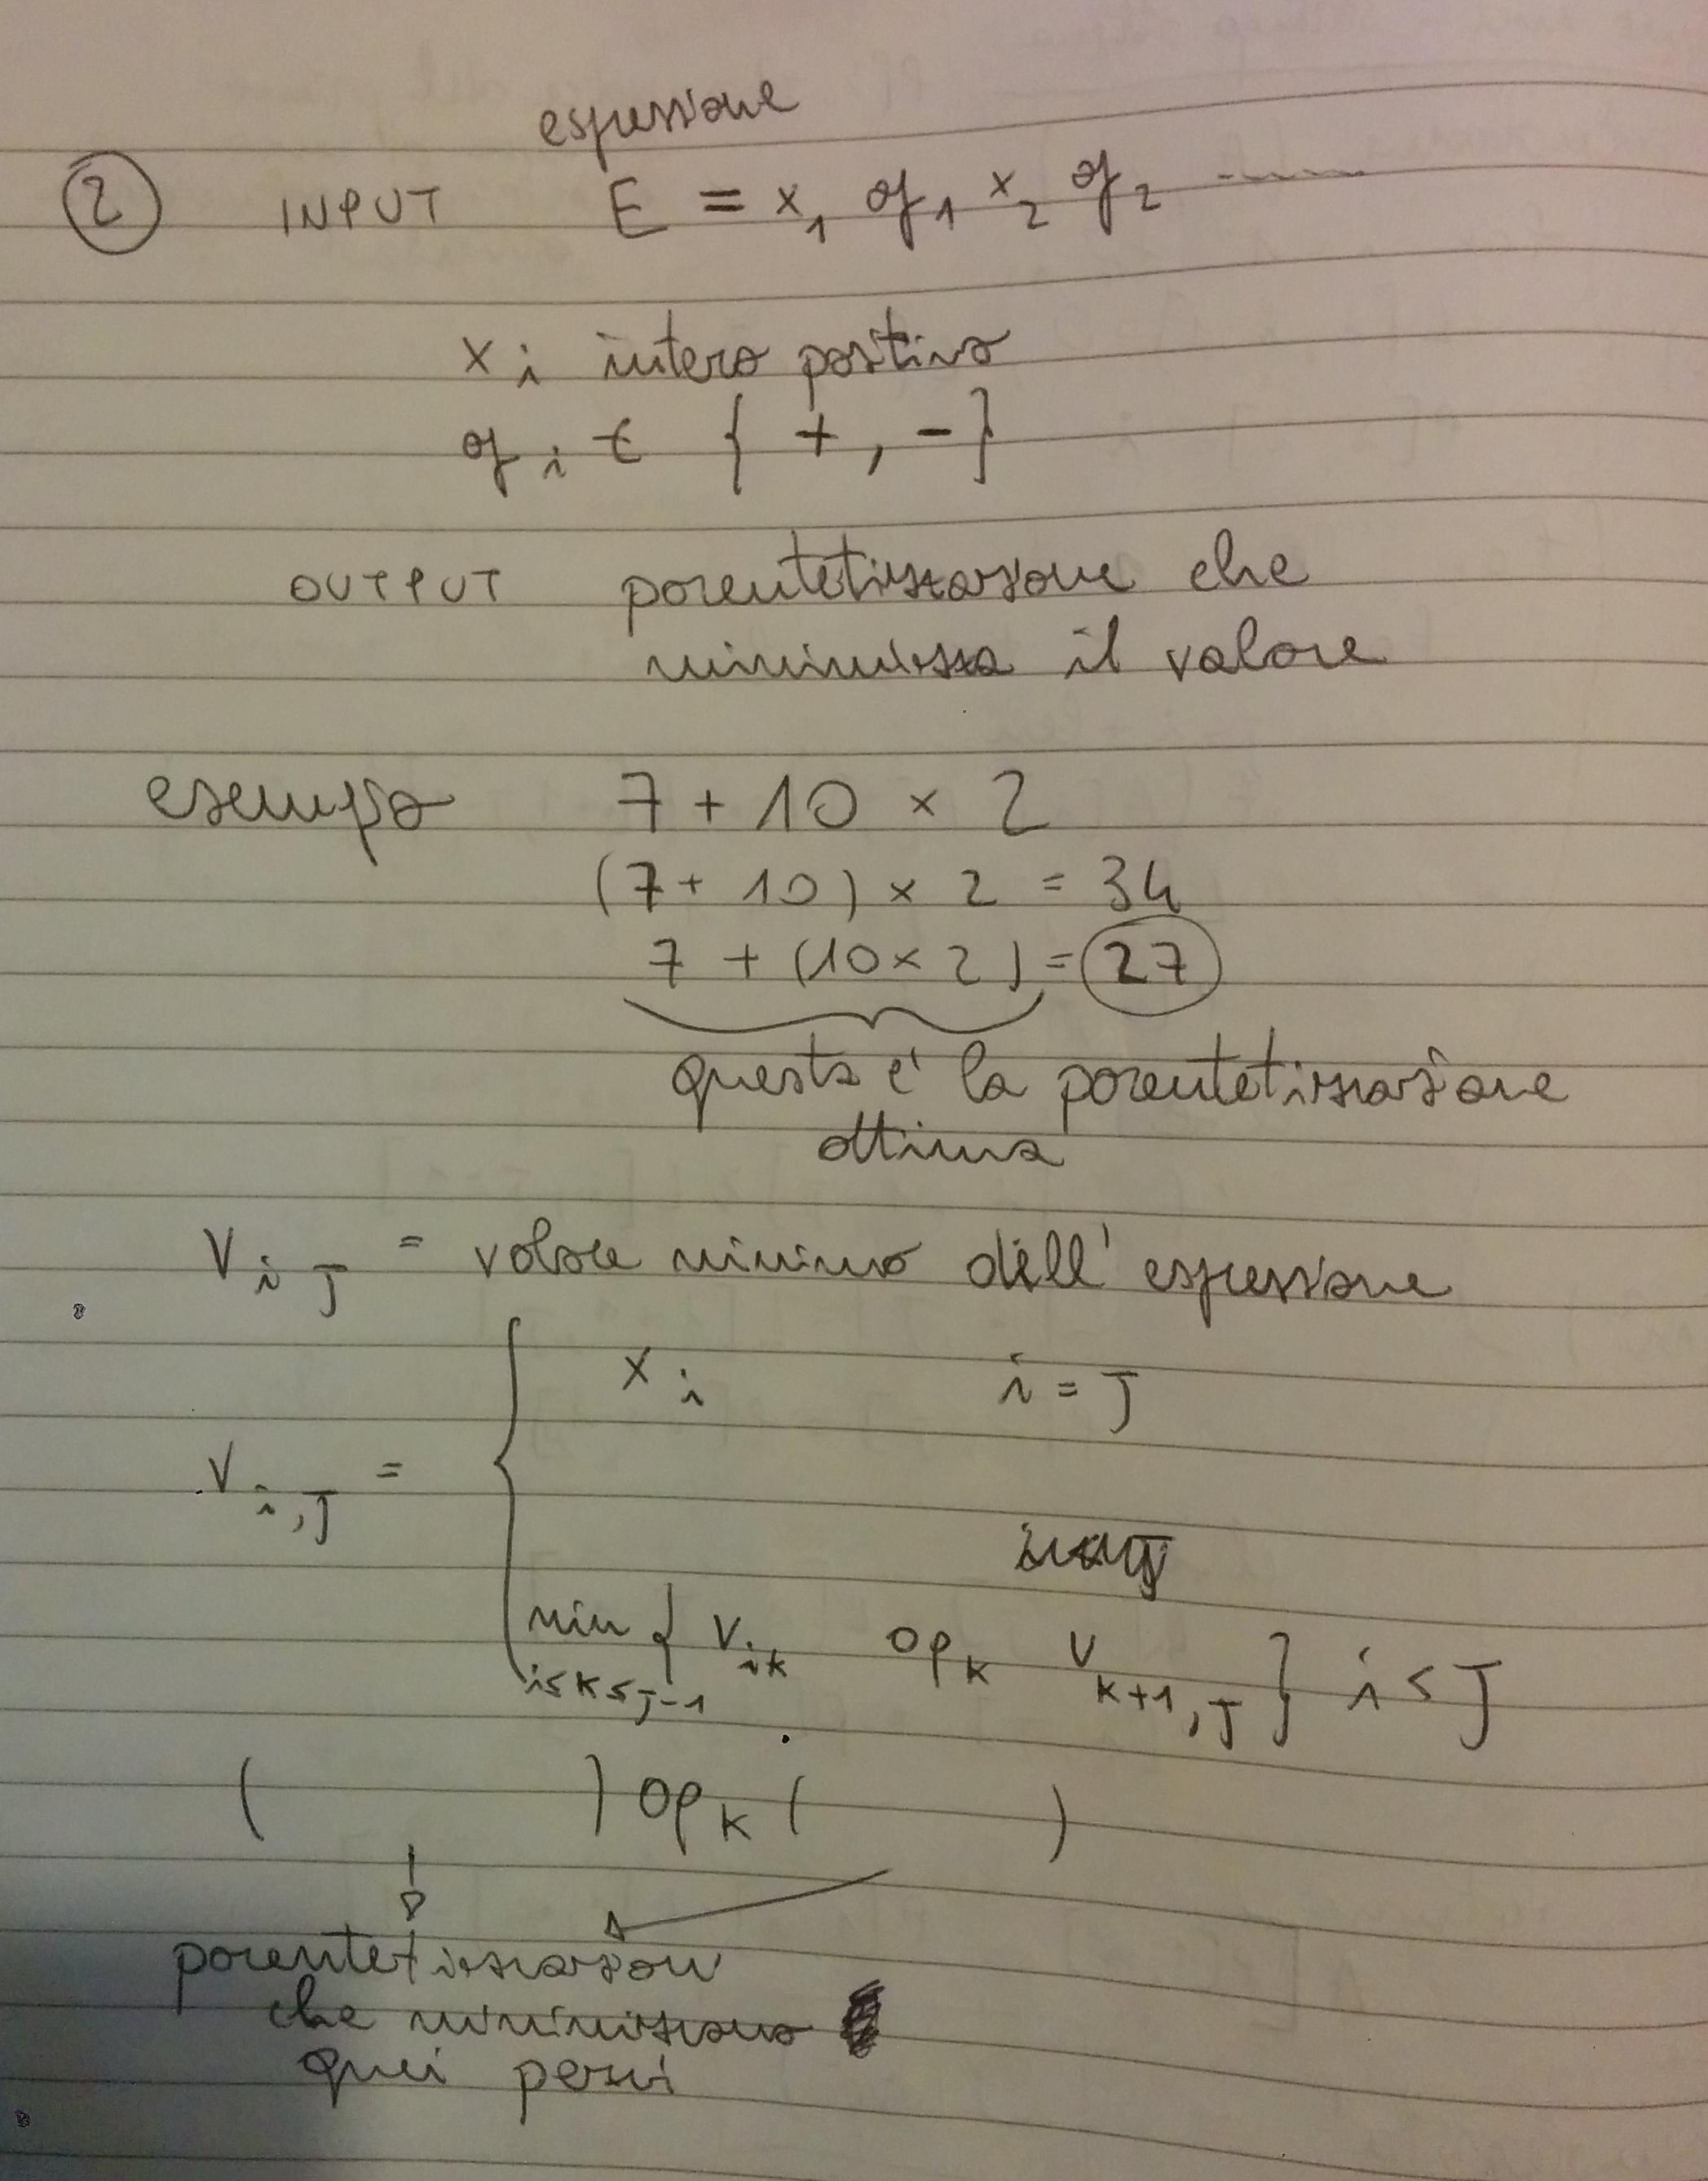 espressione
② INPUT E = x₁ op₁ x₂ op₂ ......
xᵢ intero positivo
opᵢ ∈ { +, - }
OUTPUT parentetizzazione che
minimizza il valore
esempio 7 + 10 × 2
(7 + 10) × 2 = 34
7 + (10 × 2) = 27
questa è la parentetizzazione
ottima
V i J = valore minimo dell' espressione
xᵢ i = J
V i,J =
min { V ik op k V k+1,J } i < J
i ≤ k ≤ J-1
( ) op k ( )
parentetizzazioni
che minimizzano
quei pezzi